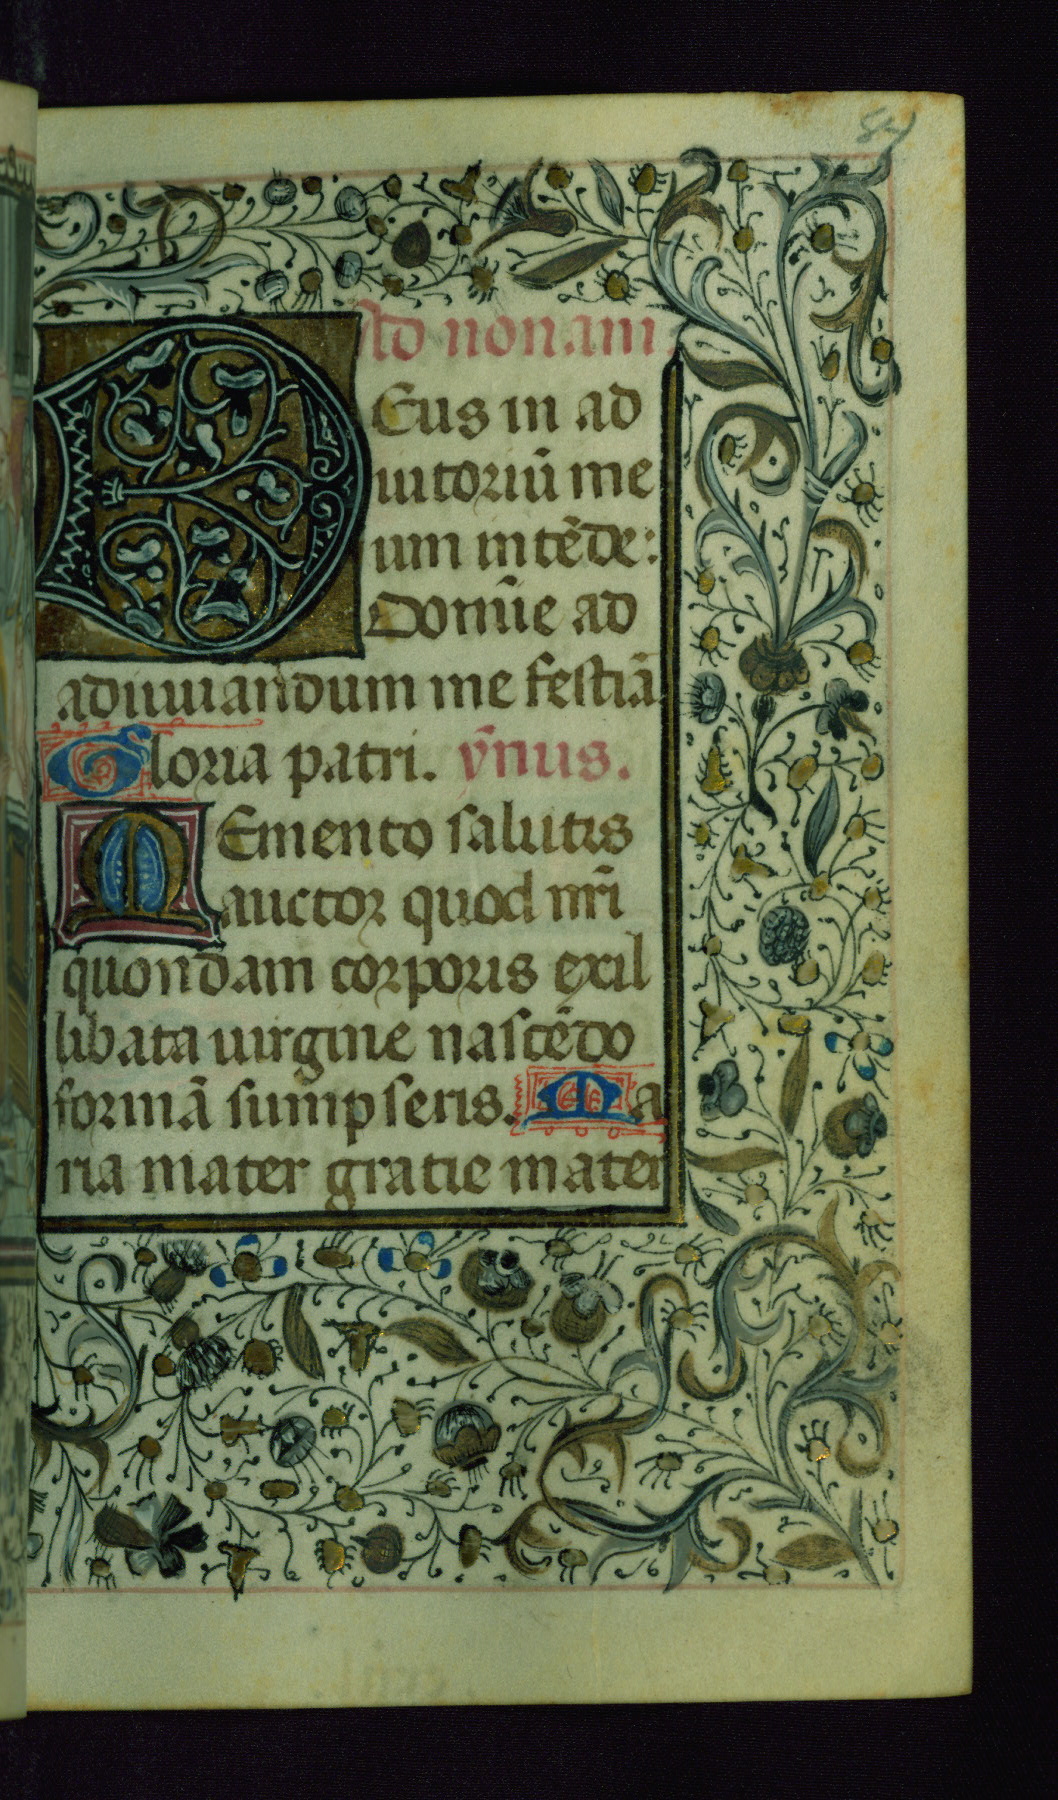 84
Ad non.am
DEus in ad
iutoriū me
um intēde:
Domīe ad
adiuuandum me festiā.
Gloria patri. ẏnius.
MEmento salutis
auctor quod nr̄i
quondam corporis exil
libata uirgine nascēdo
formā sumpseris. Ma
ria mater gratie mater